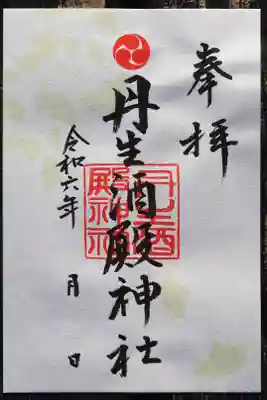 奉拝
丹生酒殿神社
令和六年 月 日
丹生酒
殿神社